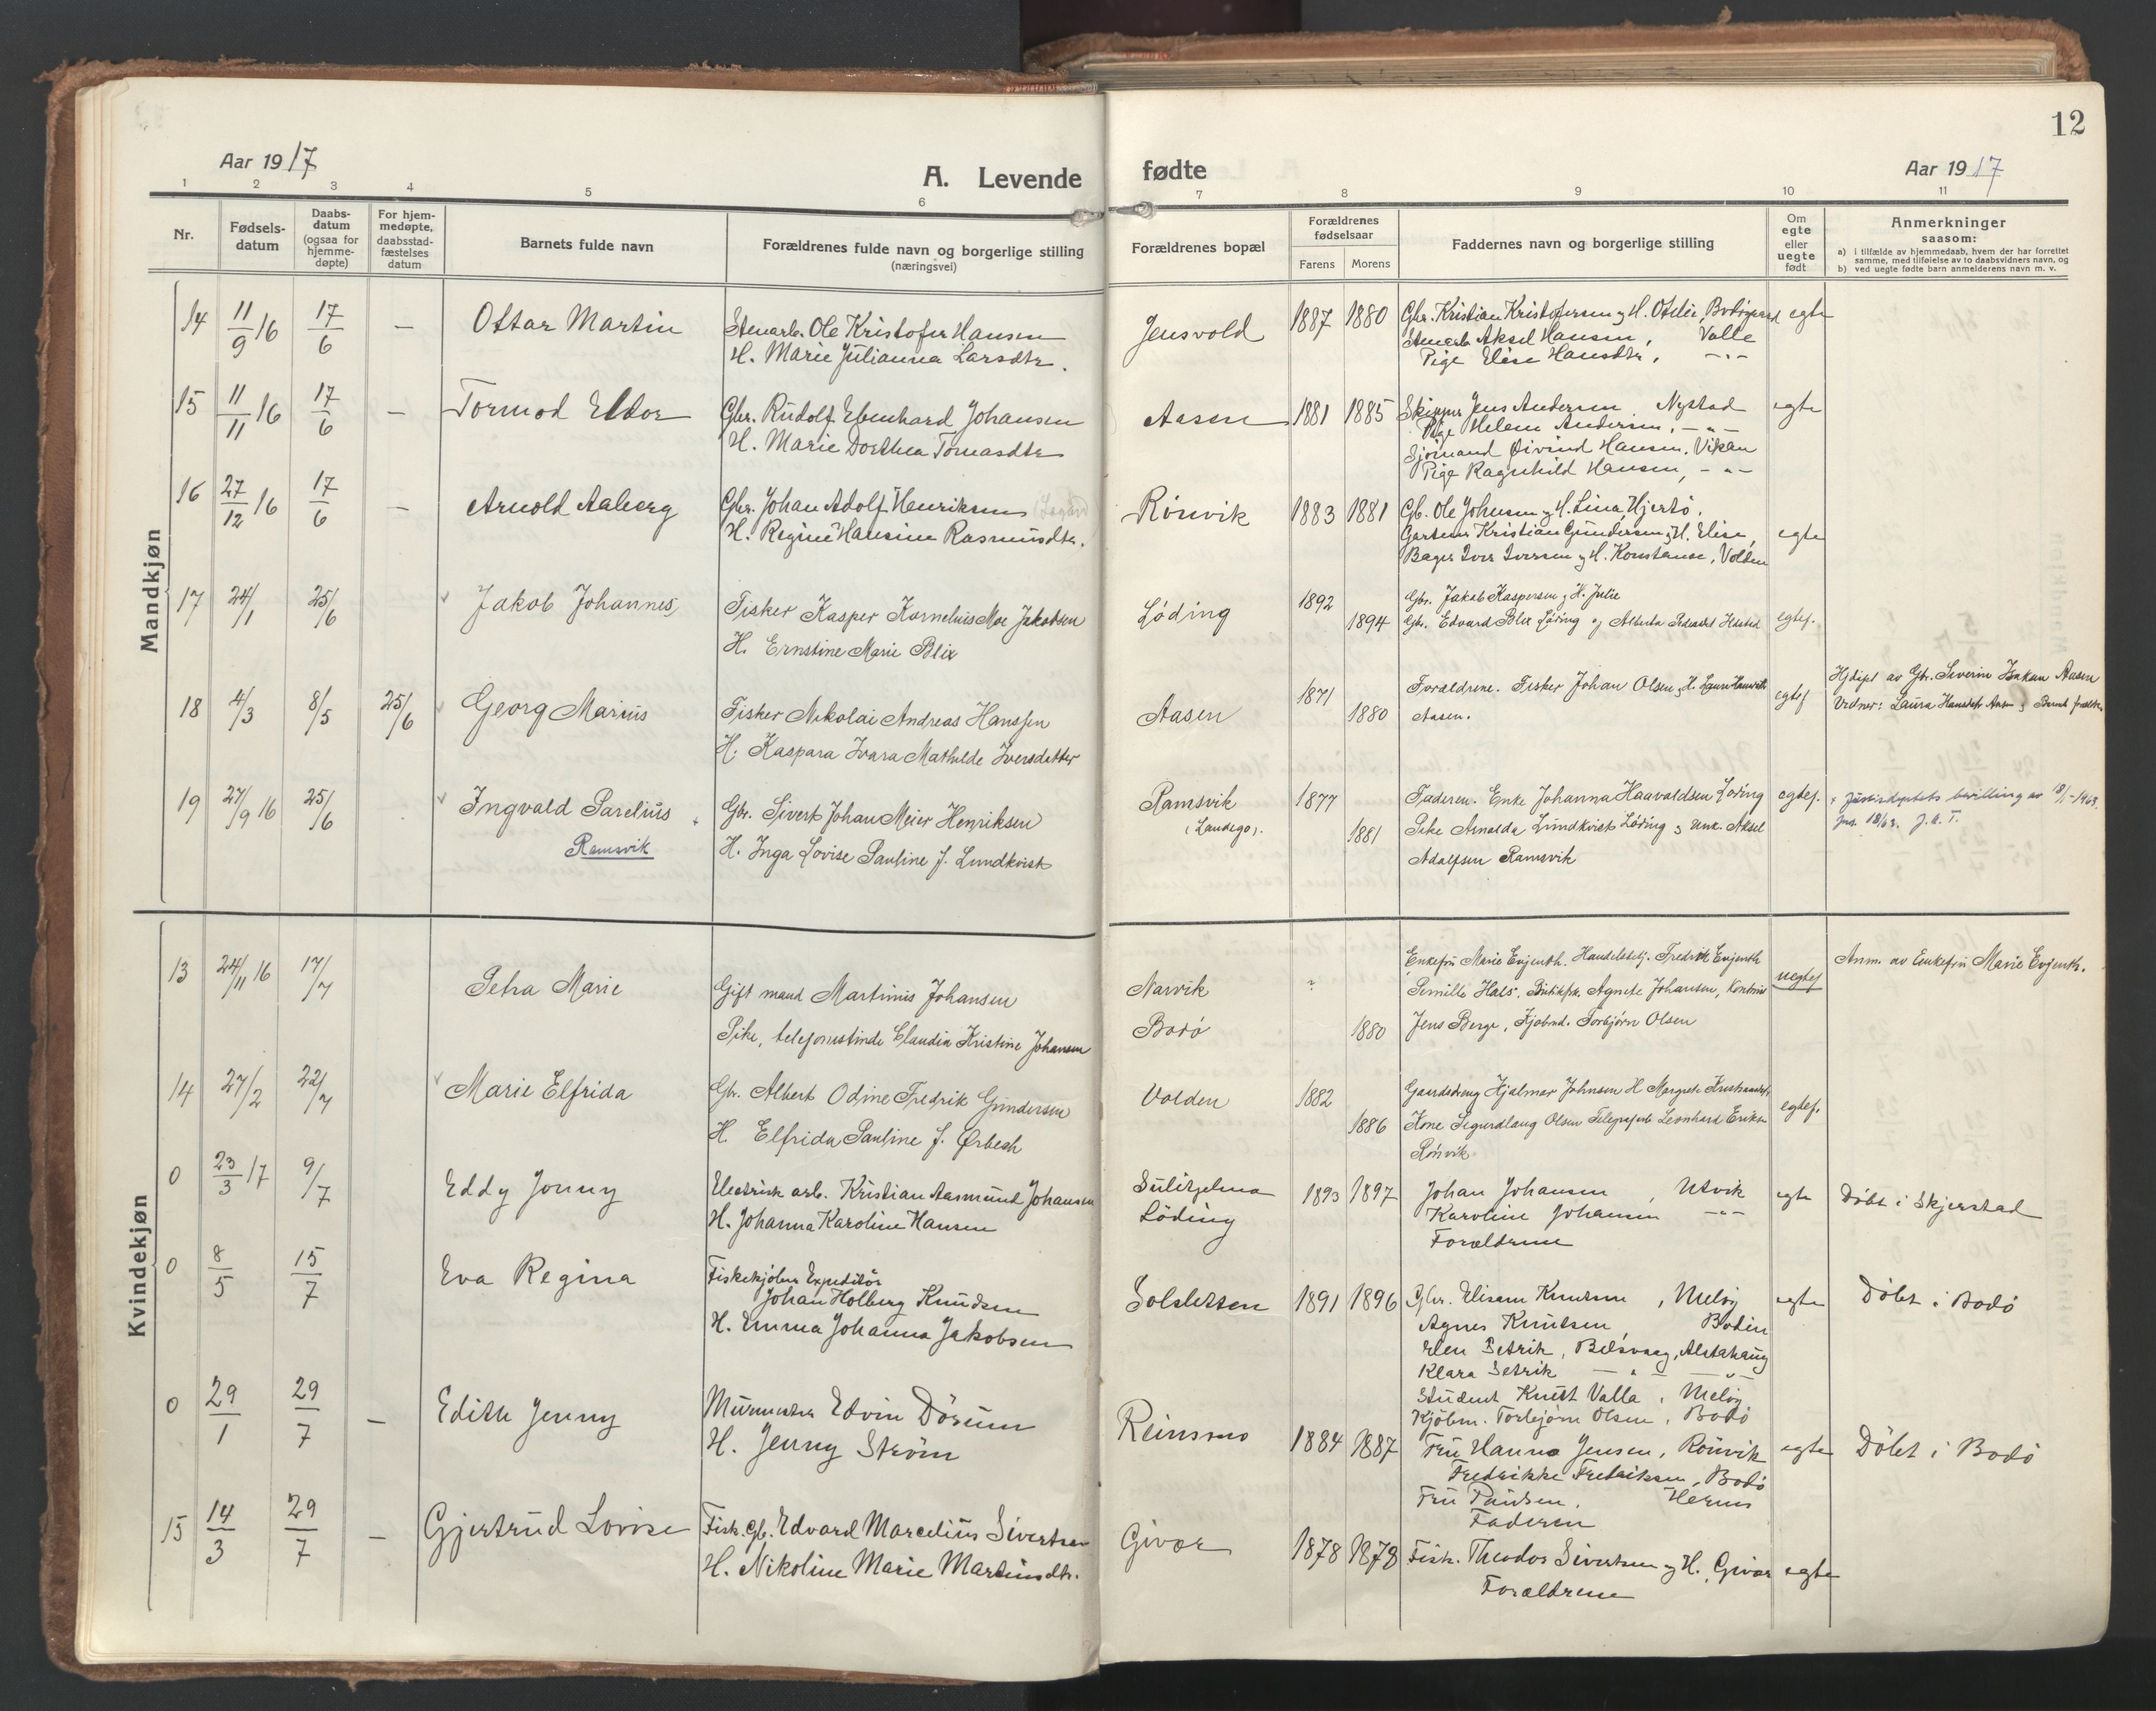 12
Aar 1917
A. Levende fødte
Aar 1917
1 2 3 4 5 6 7 8 9 10 11
Nr.
Fødsels-
datum
Daabs-
datum
(ogsaa for
hjemme-
døpte)
For hjem-
medøpte,
daabsstad-
fæstelses
datum
Barnets fulde navn
Forældrenes fulde navn og borgerlige stilling
(næringsvei)
Forældrenes bopæl
Forældrenes
fødselsaar
Farens Morens
Faddernes navn og borgerlige stilling
Om
egte
eller
uegte
født
Anmerkninger
saasom:
a) i tilfælde av hjemmedaab, hvem der har forrettet
samme, med tilføielse av to daabsvidners navn, og
b) ved uegte fødte barn anmelderens navn m. v.
Mandkjøn
14 11/9 16 17/6 — Ottar Martin
Stenarb. Ole Kristofer Hansen
H. Marie Julianna Larsdtr.
Jensvold 1887 1880
Gbr. Kristian Kristofersen og H. Otelie,
Stenarb. Aksel Hansen, Valle
Pige Elise Hansdtr, -"-
egte
15 11/11 16 17/6 — Tormod Eldor
Gbr. Rudolf Edenhard Johansen
H. Marie Dorthea Tomasdtr
Aasen 1881 1885
Skipper Jens Andersen, Nystad
Pige Helene Andersen, -"-
Sjömand Øivind Hansen, Vikan
Pige Ragnhild Hansen, -"-
egte
16 27/12 16 17/6 — Arnold Aaberg
Gbr. Johan Adolf Henriksen
H. Regine Hansine Rasmusdtr.
Rönvik 1883 1881
Gb. Ole Johnsen og H. Lina, Hjertö.
Gartener Kristian Gundersen og H. Elise,
Bager Iver Iversen og H. Konstanse, Volden
egte
17 24/1 25/6 Jakob Johannes
Fisker Kasper Kornelius Moe Jakobsen
H. Ernstine Marie Blix
Løding 1892 1894
Gbr. Jakob Kaspersen og H. Julie
Gbr. Edvard Blix Löding og Alberta
egtef.
18 4/3 8/5 25/6 Georg Marius
Fisker Nikolai Andreas Hanssen
H. Kaspara Ivara Mathilde Iversdatter
Aasen 1871 1880
Forældrene. Fisker Johan Olsen og H. Laura
Aasen.
egtef
Hjdøpt av Gbr. Severin Aasen
Vidner: Laura Hansdtr Aasen og
19 27/9 16 25/6 Ingvald Parelius
Ramsvik
Gbr. Sivert Johan Meier Henriksen
H. Inga Lovise Pauline f. Lundkvist
Ramsvik
(Landego).
1877 1881
Faderen. Enke Johanna Haavaldsen Löding
Pike Arnolda Lundkvist Löding og Unk. Aksel
Adolfsen Ramsvik
egtef.
x Justisdeptets bevilling av 18/1-1963.
jnr. 18/63. J.K.T.
Kvindekjøn
13 24/11 16 17/7 Petra Marie
Gift mand Martinus Johansen
Pike, telefonistinde Claudia Kristine Johansen
Narvik
Bodö
? 1880
Enkefru Marie Evjenth. Handelsbetj. Fredrik Evjenth
Pernille Hals. Agnete Johansen,
Jens Berge, Kjøbmd. Torbjørn Olsen
uegtef
Anm. av Enkefru Marie Evjenth.
14 27/2 22/7 Marie Elfrida
Gbr. Albert Odine Fredrik Gundersen
H. Elfrida Pauline f. Ørbech
Volden 1882 1886
Gaardsdreng Hjalmar Johnsen H Margrete
Kone Sigurdlaug Olsen Telegrafarb Leonhard Eriksen
Rönvik
egtef.
0 23/3 17 9/7 Eddy Jonny
Electrisk arb. Kristian Aasmund Johansen
H. Johanna Karoline Hansen
Sulitjelma
Löding
1893 1897
Johan Johansen, Utvik
Karoline Johansen -"-
Forældrene
egte
Döbt i Skjerstad
0 8/5 15/7 Eva Regina
Fiskekjöber Expeditör
Johan Holberg Knudsen
H. Emma Johanna Jakobsen
Solsletten 1891 1896
Gbr. Elisam Knutsen, Melöy
Agnes Knutsen, Bodin
Elen Setrik, Belsvaag, Alstahaug
Klara Setrik -"- -"-
Student Knut Valla, Melöy
Kjöbm. Torbjörn Olsen, Bodö
egte
Döbt i Bodö
0 29/1 29/7 — Edith Jenny
Murmester Edvin Dörum
H. Jenny Ström
Reinsmo 1884 1887
Fru Hanna Jensen, Rönvik
Fredrikke Fredriksen, Bodö
Fru Paulsen, Hernes
Faderen
egte
Döbt i Bodö
15 14/3 29/7 — Gjertrud Lovise
Fisk. gb. Edvard Marcelius Sivertsen
H. Nikoline Marie Martinsdtr.
Givær 1878 1878
Fisk. Theodor Sivertsen og H. Givær
Forældrene
egte